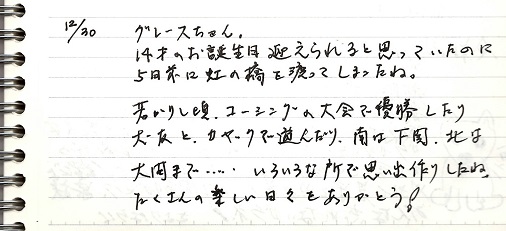 12/30 グレースちゃん。
14才のお誕生日迎えられると思っていたのに
5日前に虹の橋を渡ってしまったね。
若かりし頃、コーシングの大会で優勝したり
犬友と、カヤックで遊んだり、南は下関、北は
大間まで・・・・・いろいろな所で思い出作りしたね
たくさんの楽しい日々をありがとう!